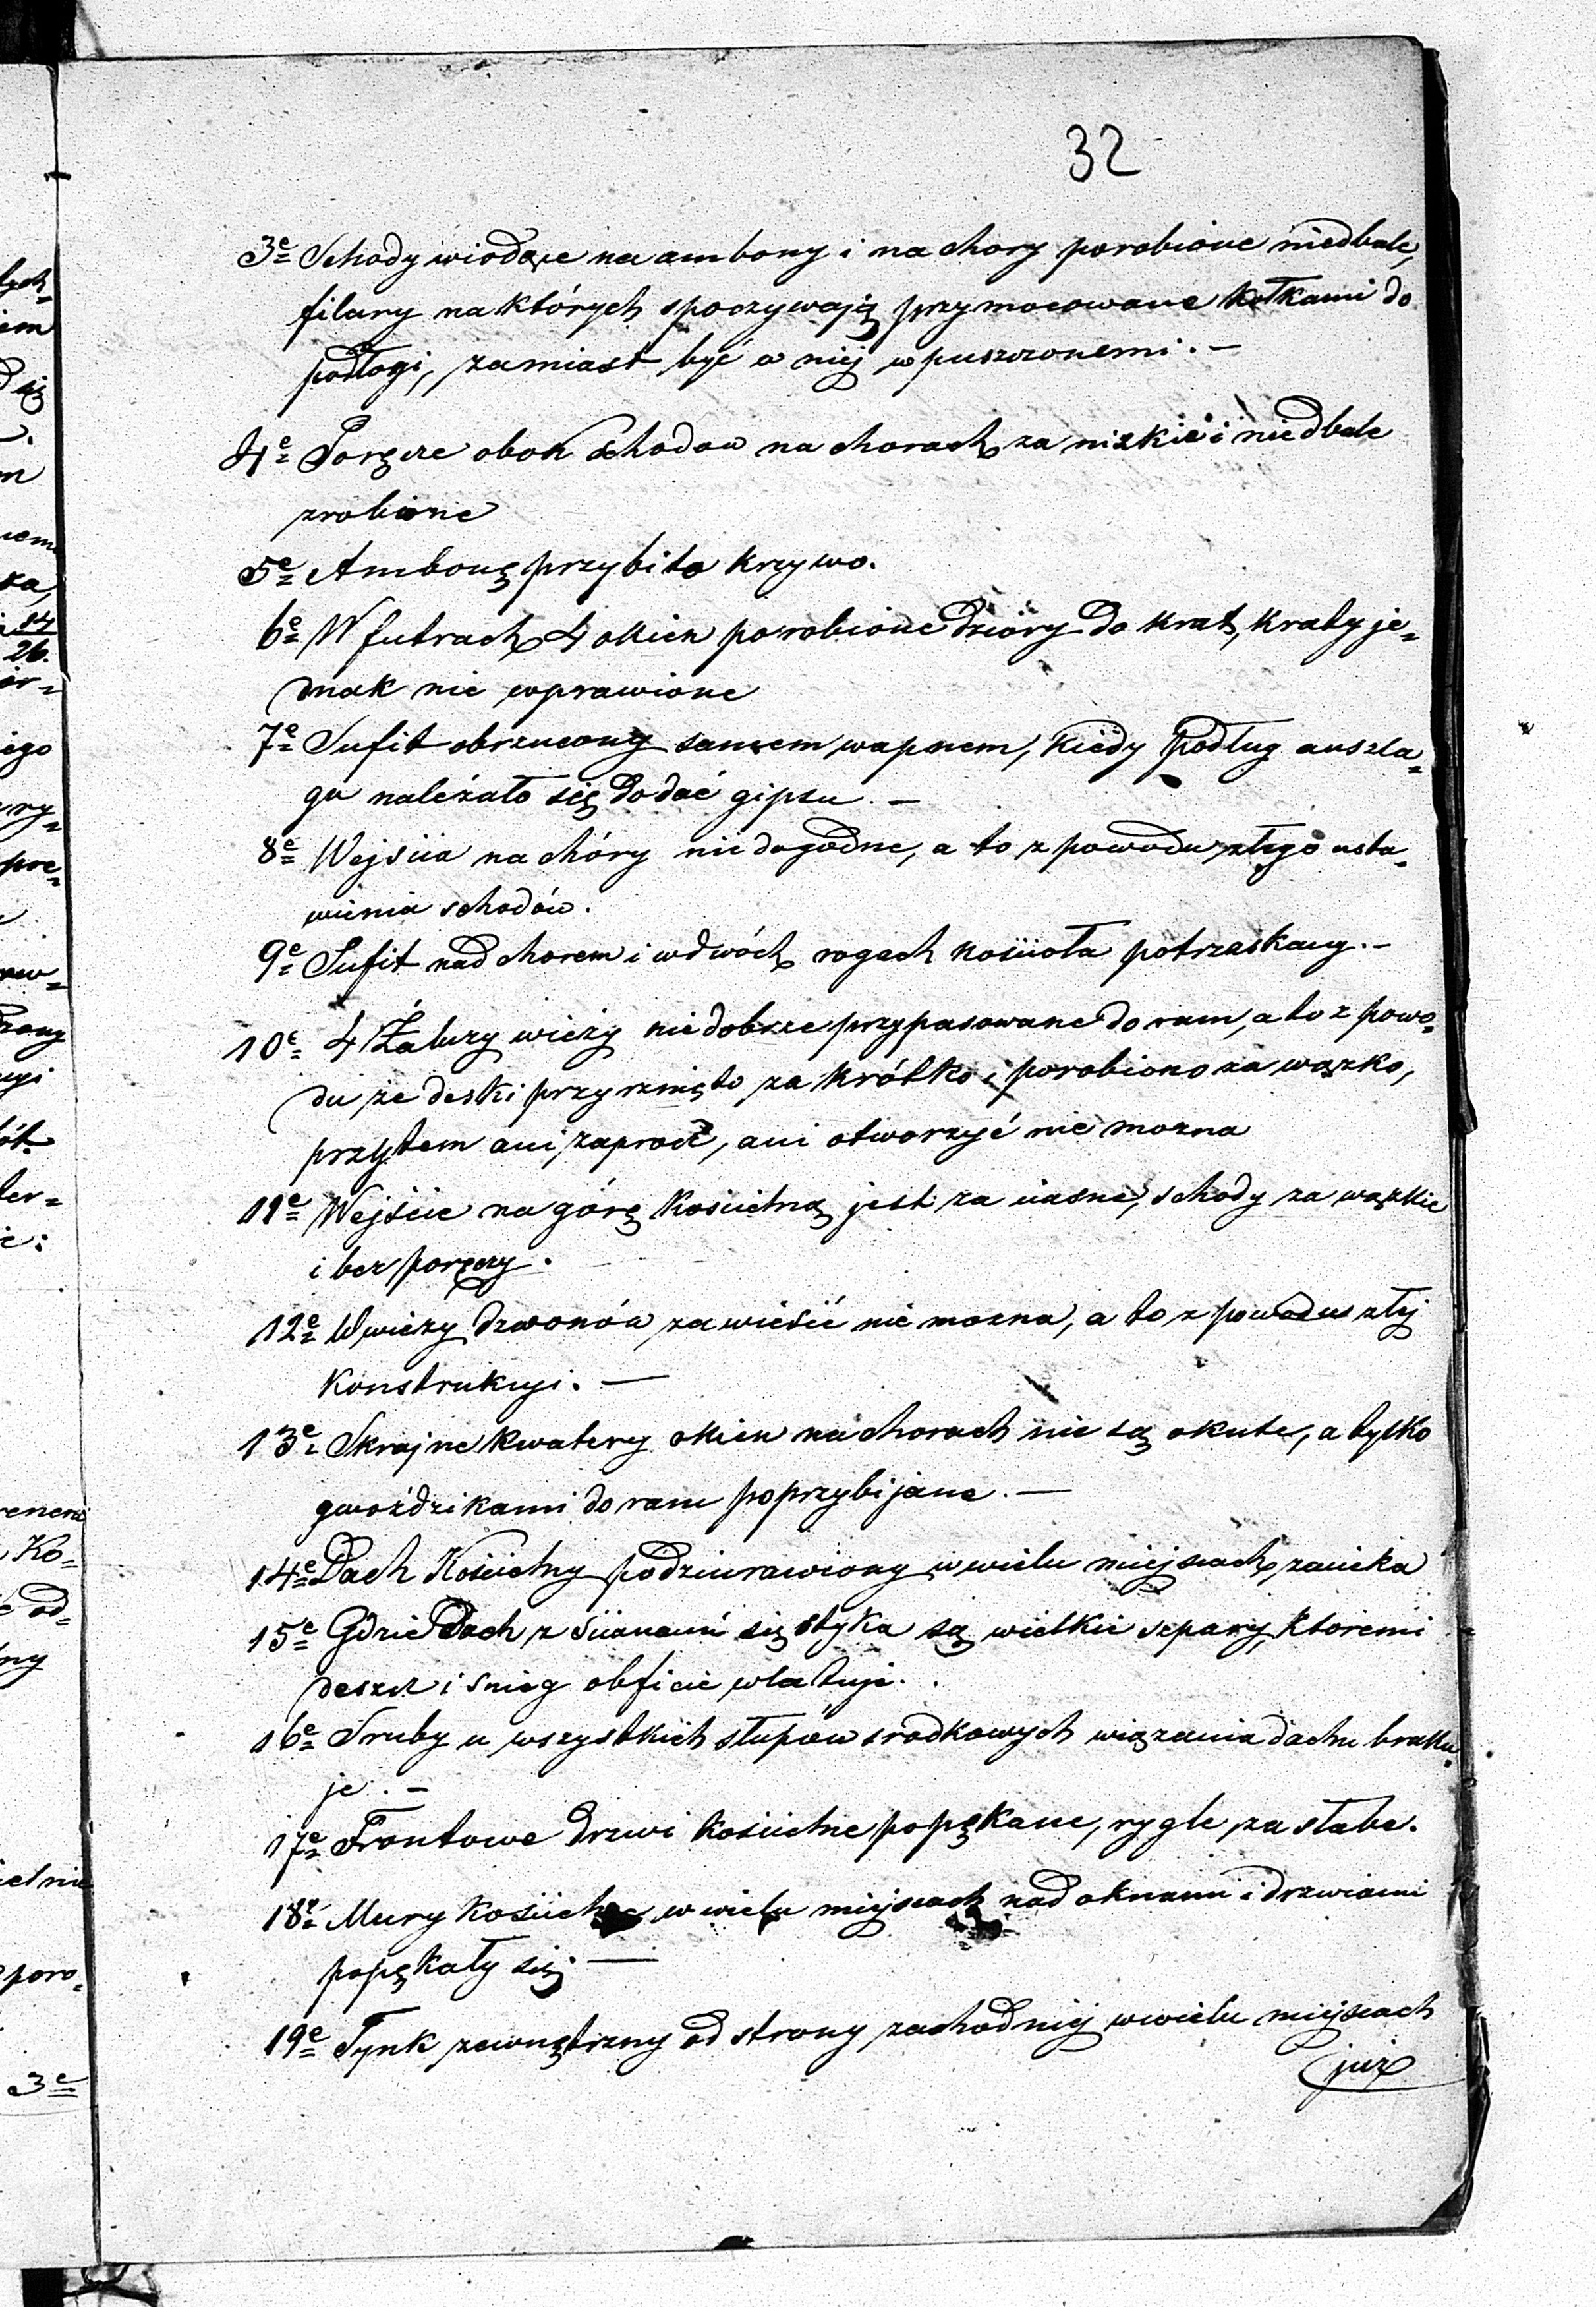 32
3e Schody wiodące na ambony i na chory porobione niedbale,
filary na których spoczywają przymocowane kołkami do
podłogi, zamiast być w niej wpuszczonemi. —
4e Poręcze obok schodow na chorach za nizkie i niedbale
zrobione
5e Ambonę przybito krzywo.
6e W futrach 4 okien porobione dzióry do krat, kraty je=
dnak nie wprawione
7e Sufit obrzucony samem wapnem, kiedy podług anszla=
gu należało się dodać gipsu. —
8e Wejścia na chóry niedogodne, a to z powodu złego usta=
wienia schodów.
9e Sufit nad chorem i w dwóch rogach kościoła potrzaskany. —
10e 4 Żaluzy wieży nie dobrze przypasowane do ram, a to z powo=
du że deski przyrznięto za krótko i porobiono za wązko,
przytem ani zaprzeć, ani otworzyć nie mozna
11e Wejście na górę kościelną jest za ciasne, schody za wązkie
i bez poręczy.
12e W wieży dzwonów zawieśić nie mozna, a to z powodu złej
konstrukcyi. —
13e Skrajne kwatery okien na chorach nie są okute, a tylko
gwoździkami do ram poprzybijane. —
14e Dach Kościelny podziurawiony w wielu miejscach, zacieka
15e Gdzie Dach z ścianami się styka są wielkie szpary, ktoremi
deszcz i snieg obficie wlatuje.
16e Sruby u wszystkich słupów srodkowych wiązania dachu braku=
je. —
17e Frontowe drzwi kościelne popękane, rygle za słabe.
18e Mury w wielu miejscach nad oknami i drzwiami
popękały się. —
19e Tynk zewnętrzny od strony zachodniej w wielu miejscach
już